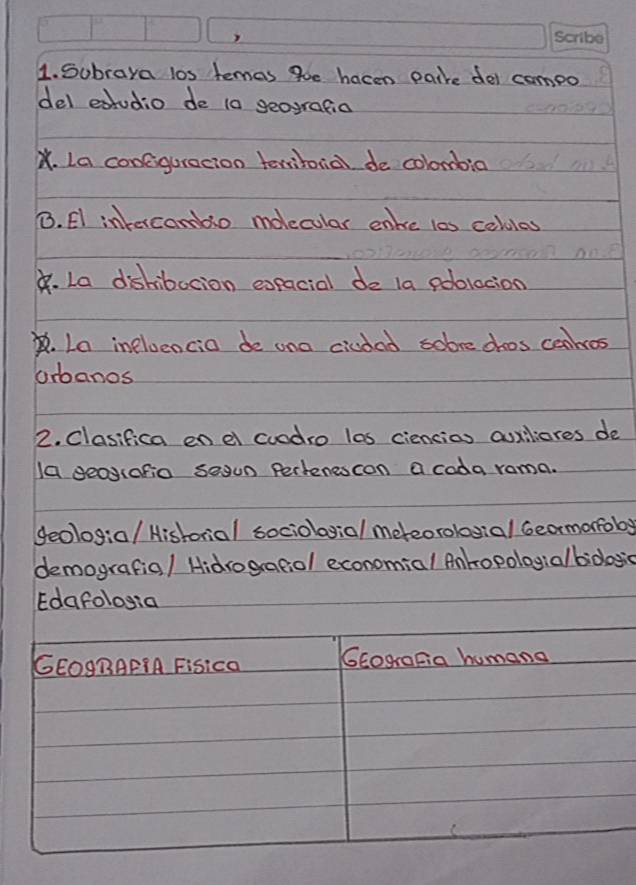 Scribe
1. Subraya los temas que hacen parte del campo
del estudio de la geografia
A. La configuracion territorial de colombia
B. El intercambio molecular entre las celulas
C. La distribucion espacial de la poblacion
D. La influencia de una ciudad sobre otros centros
urbanos
2. Clasifica en el cuadro las ciencias auxiliares de
la geografia segun pertenescan a cada rama.
geologia/ Historia/ sociologia/ meteorologia/ Geormorfolog
demografia/ Hidrografia/ economia/ Antropologia/ biologia
Edafologia
GEOgRAFiA Fisica
GEografia humana